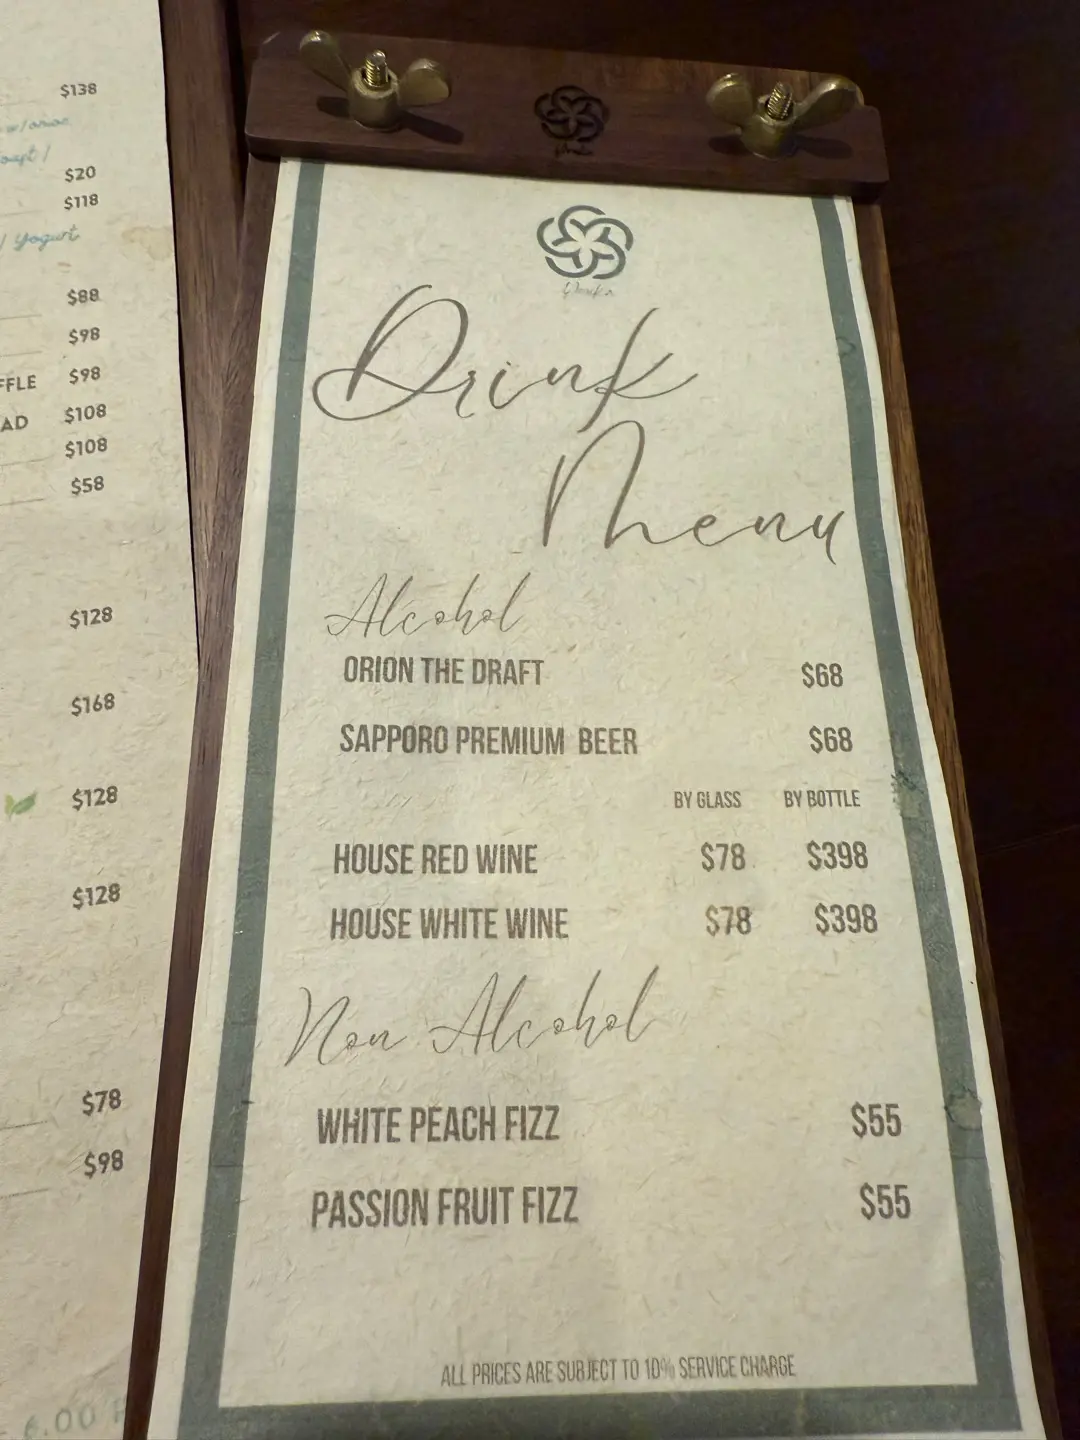 $138
$20
$118
/ Yogurt
$88
$98
FFLE $98
AD $108
$108
$58
$128
$168
$128
$128
$78
$98
6.00
Drink
Menu
Alcohol
ORION THE DRAFT $68
SAPPORO PREMIUM BEER $68
BY GLASS BY BOTTLE
HOUSE RED WINE $78 $398
HOUSE WHITE WINE $78 $398
Non Alcohol
WHITE PEACH FIZZ $55
PASSION FRUIT FIZZ $55
ALL PRICES ARE SUBJECT TO 10% SERVICE CHARGE